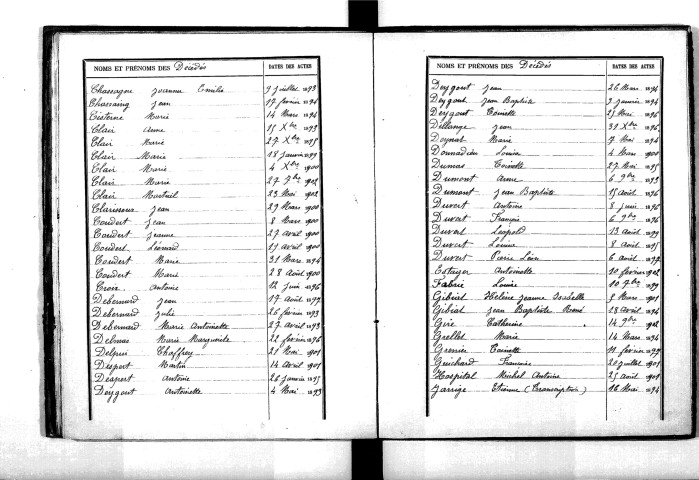 NOMS ET PRÉNOMS DES Décédés DATES DES ACTES
Chassagne Jeanne Emilie 9 juillet 1893
Chassaing Jean 17 février 1894
Cisterne Marie 14 Mars 1896
Clair Anne 15 Xbre 1893
Clair Marie 27 Xbre 1895
Clair Marie 18 janvier 1899
Clair Marie 4 Xbre 1900
Clair Marie 27 7bre 1902
Clair Martial 23 Mai 1902
Clarissou Jean 29 Mars 1900
Coudert Jean 8 Mars 1900
Coudert Jeanne 27 avril 1900
Coudert Léonard 19 avril 1900
Coudert Marie 31 Mars 1894
Coudert Marie 28 Août 1900
Croix Antoine 12 juin 1896
Debernard Jean 17 Août 1897
Debernard Julie 26 février 1893
Debernard Marie Antoinette 27 avril 1893
Delmas Marie Marguerite 22 février 1896
Delpui Choffrey 21 Mai 1901
Despert Martin 14 avril 1901
Despert Antoine 26 janvier 1895
Deygout Antoinette 4 Mai 1893
NOMS ET PRÉNOMS DES Décédés DATES DES ACTES
Deygout Jean 26 Mars 1894
Deygout Jean Baptiste 9 janvier 1894
Deygout Toinette 25 Mai 1896
Dillange Jean 31 Xbre 1896
Doynat Marie 7 Mai 1894
Donnadieu Louise 4 Mars 1900
Dumas Toinette 27 Mai 1895
Dumont Anne 6 9bre 1893
Dumont Jean Baptiste 15 Août 1896
Duvert Antoine 8 juin 1896
Duvert François 6 9bre 1896
Duvert Léopold 13 Août 1899
Duvert Louise 8 Août 1895
Duvert Pierre Léon 6 Août 1897
Estager Antoinette 10 février 1902
Fabrie Louise 10 7bre 1899
Gibiat Hélène Jeanne Isabelle 8 Mars 1901
Gibiat Jean Baptiste René 18 avril 1894
Gire Catherine 14 9bre 1902
Grellet Marie 14 Mars 1894
Grenier Toinette 11 février 1899
Guichard Françoise 20 juillet 1901
Hospital Michel Antoine 25 Août 1901
Jarrige Etienne (Transcription) 16 Mai 1894